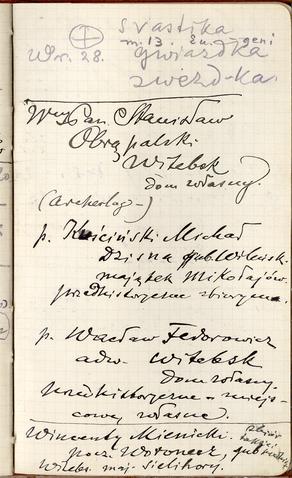 svastika
m. 13. zn. geni
Wr. 28. gwiazdka
zwězd-ka
W Pan Stanisław
Obrąpalski
Witebsk
dom własny
(archeolog-)
p. Kuściński Michał
Dzisna gub. Wileńsk.
majątek Mikołajów.
przedhistoryczne zbiory ma.
p. Wacław Fedorowicz
adw. Witebsk
dom własny.
przedhistoryczne - miejs-
cowe, własne.
Wincenty Mienicki.
pocz. Wołoniec, gub.
Witebs. maj. Sielihory.